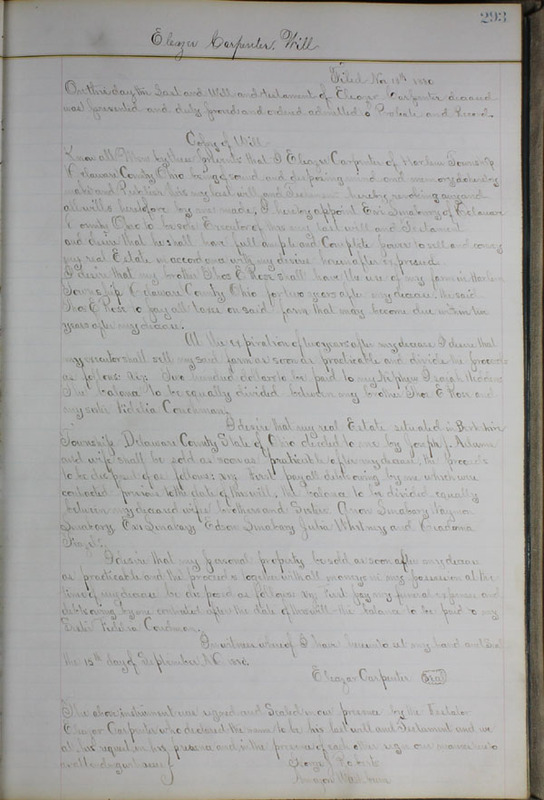 293
Eleazer Carpenter, Will
Filed Nov 18th
On this day the Last and Will and testament of Eleazer Carpenter deceased
was presented and duly proved and ordered admitted to Probate and Record.
Copy of Will
Know all Men by these presents that I Eleazer Carpenter of Harlem Township
Delaware County Ohio being of sound and disposing mind and memory do hereby
make and Publish this my last will and Testament hereby revoking any and
all wills heretofore by me made, I hereby appoint of Delaware
County Ohio to be sole Executor of this my last will and Testament
and desire that he shall have full ample and Complete power to sell and convey
my real Estate in accordance with my desires hereinafter expressed.
I desire that my brother Thos E Rose shall have the use of my farm in Harlem
Township Delaware County Ohio for two years after my decease the said
Thos E Rose to pay all taxes on said farm that may become due within two
years after my decease.
At the expiration of two years after my decease I desire that
my executor shall sell my said farm as soon as practicable and divide the proceeds
as follows viz. Two hundred dollars to be paid to my Nephew
The balance to be equally divided between my brother Thos E Rose and
my sister Fidelia
I desire that my real Estate situated in Berkshire
Township Delaware County State of Ohio deeded to me by Joseph J. Adams
and wife shall be sold as soon as practicable after my decease, the proceeds
to be disposed of as follows; viz First pay all debts owing by me which were
contracted previous to the date of this will, the balance to be divided equally
between my deceased wifes brothers and Sister
Julia Whitney and

I desire that my personal property be sold as soon after my decease
as practicable and the proceeds together with all moneys in my possession at the
time of my decease be disposed as follows viz First pay my funeral expenses and
debts owing by me contracted after the date of this will the balance to be paid to my
Sister Fidelia
In witness whereof I have hereunto set my hand and Seal
this 15th day of September
Eleazer Carpenter Seal
The above instrument was signed and Sealed in our presence by the Testator
Eleazer Carpenter who declared the same to be his last will and Testament and we
at his request in his presence and in the presence of each other sign our names hereto
as attesting witnesses
George Roberts